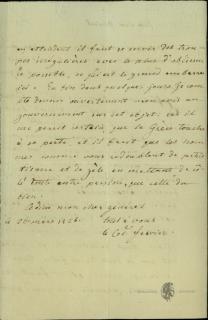 en attendant il faut se servir des trou-
pes irrégulières avec le plus d'
le possible, et c'est le grand embarras
ici. En fin dans quelques jours je comp
te donner ouvertement mon avis au
gouvernement sur cet objet; car il
me parait certain que la Grèce touche
à sa perte, et il faut que les hom
mes comme vous redoublent de patri
otisme et de zèle en mettant de cô
té toute autre pensée que celle du
bien.
Adieu mon cher général
1826. tout à vous
le Col. Fabvier